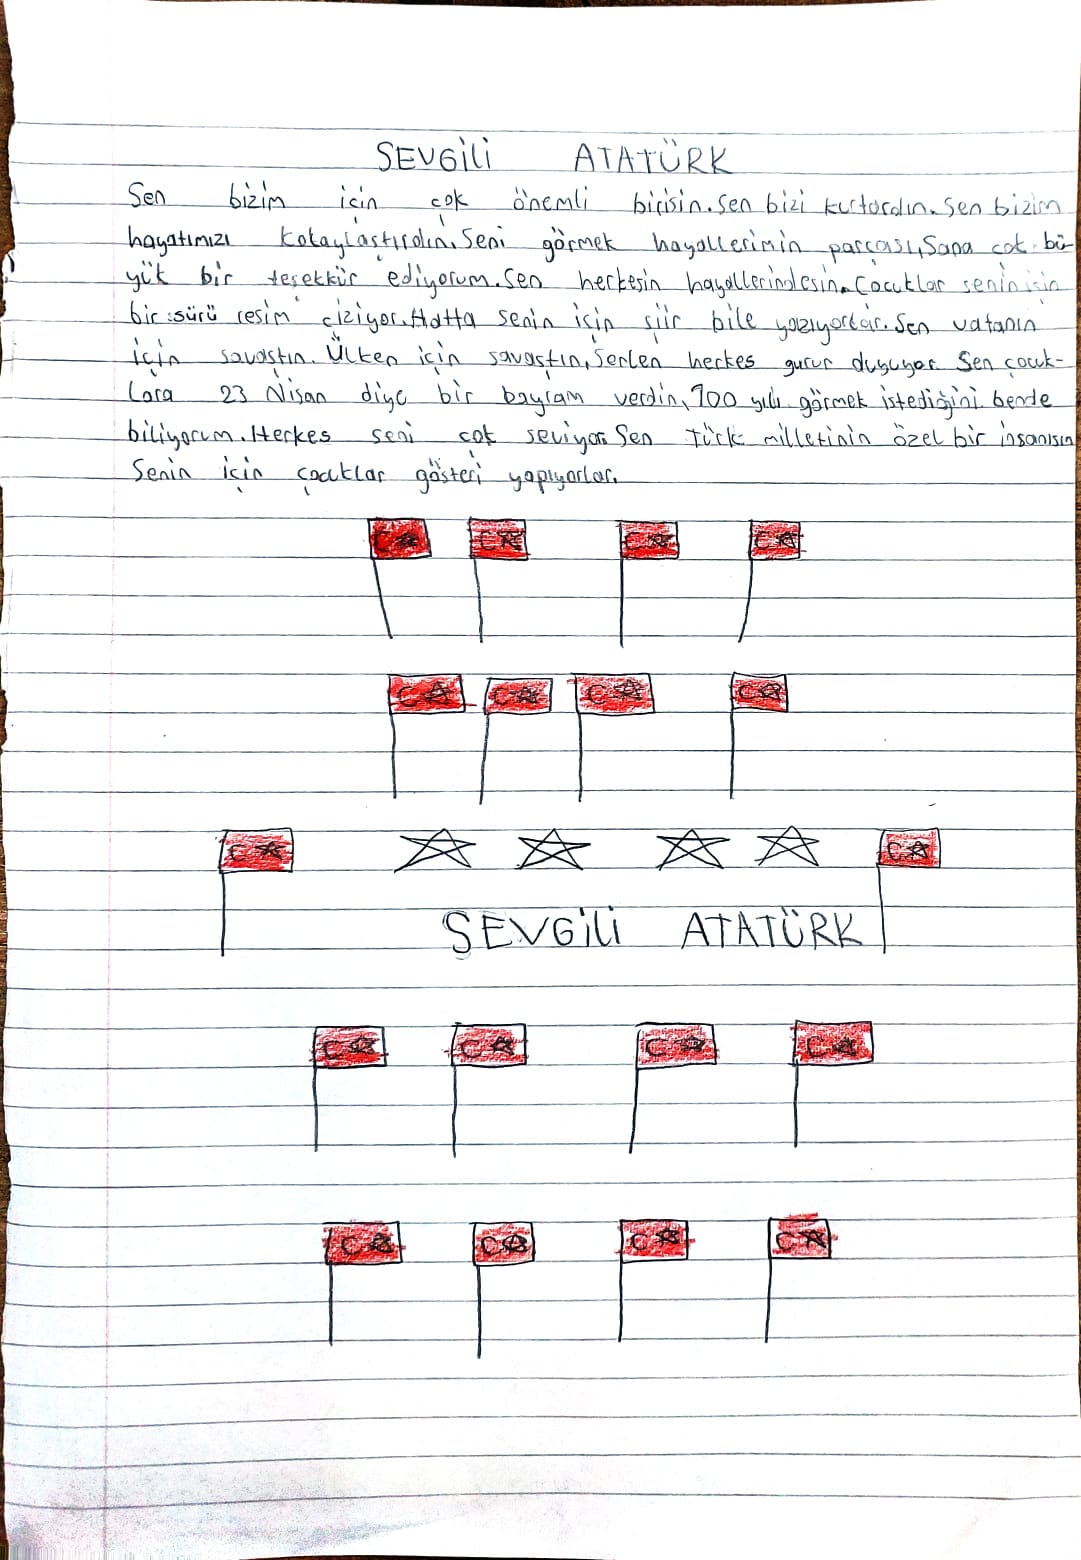 SEVGİLİ ATATÜRK
Sen bizim için çok önemli birisin. Sen bizi kurtardın. Sen bizim
hayatımızı kolaylaştırdın. Seni görmek hayallerimin parçası, Sana çok bü-
yük bir teşekkür ediyorum. Sen herkesin hayallerindesin. Çocuklar senin için
bir sürü resim çiziyor. Hatta senin için şiir bile yazıyorlar. Sen vatanın
için savaştın. Ülken için savaştın, Senlen herkes gurur duyuyor. Sen çocuk-
lara 23 Nisan diye bir bayram verdin, 100 yılı görmek istediğini bende
biliyorum. Herkes seni çok seviyor. Sen Türk milletinin özel bir insanısın
Senin için çocuklar gösteri yapıyorlar.
SEVGİLİ ATATÜRK